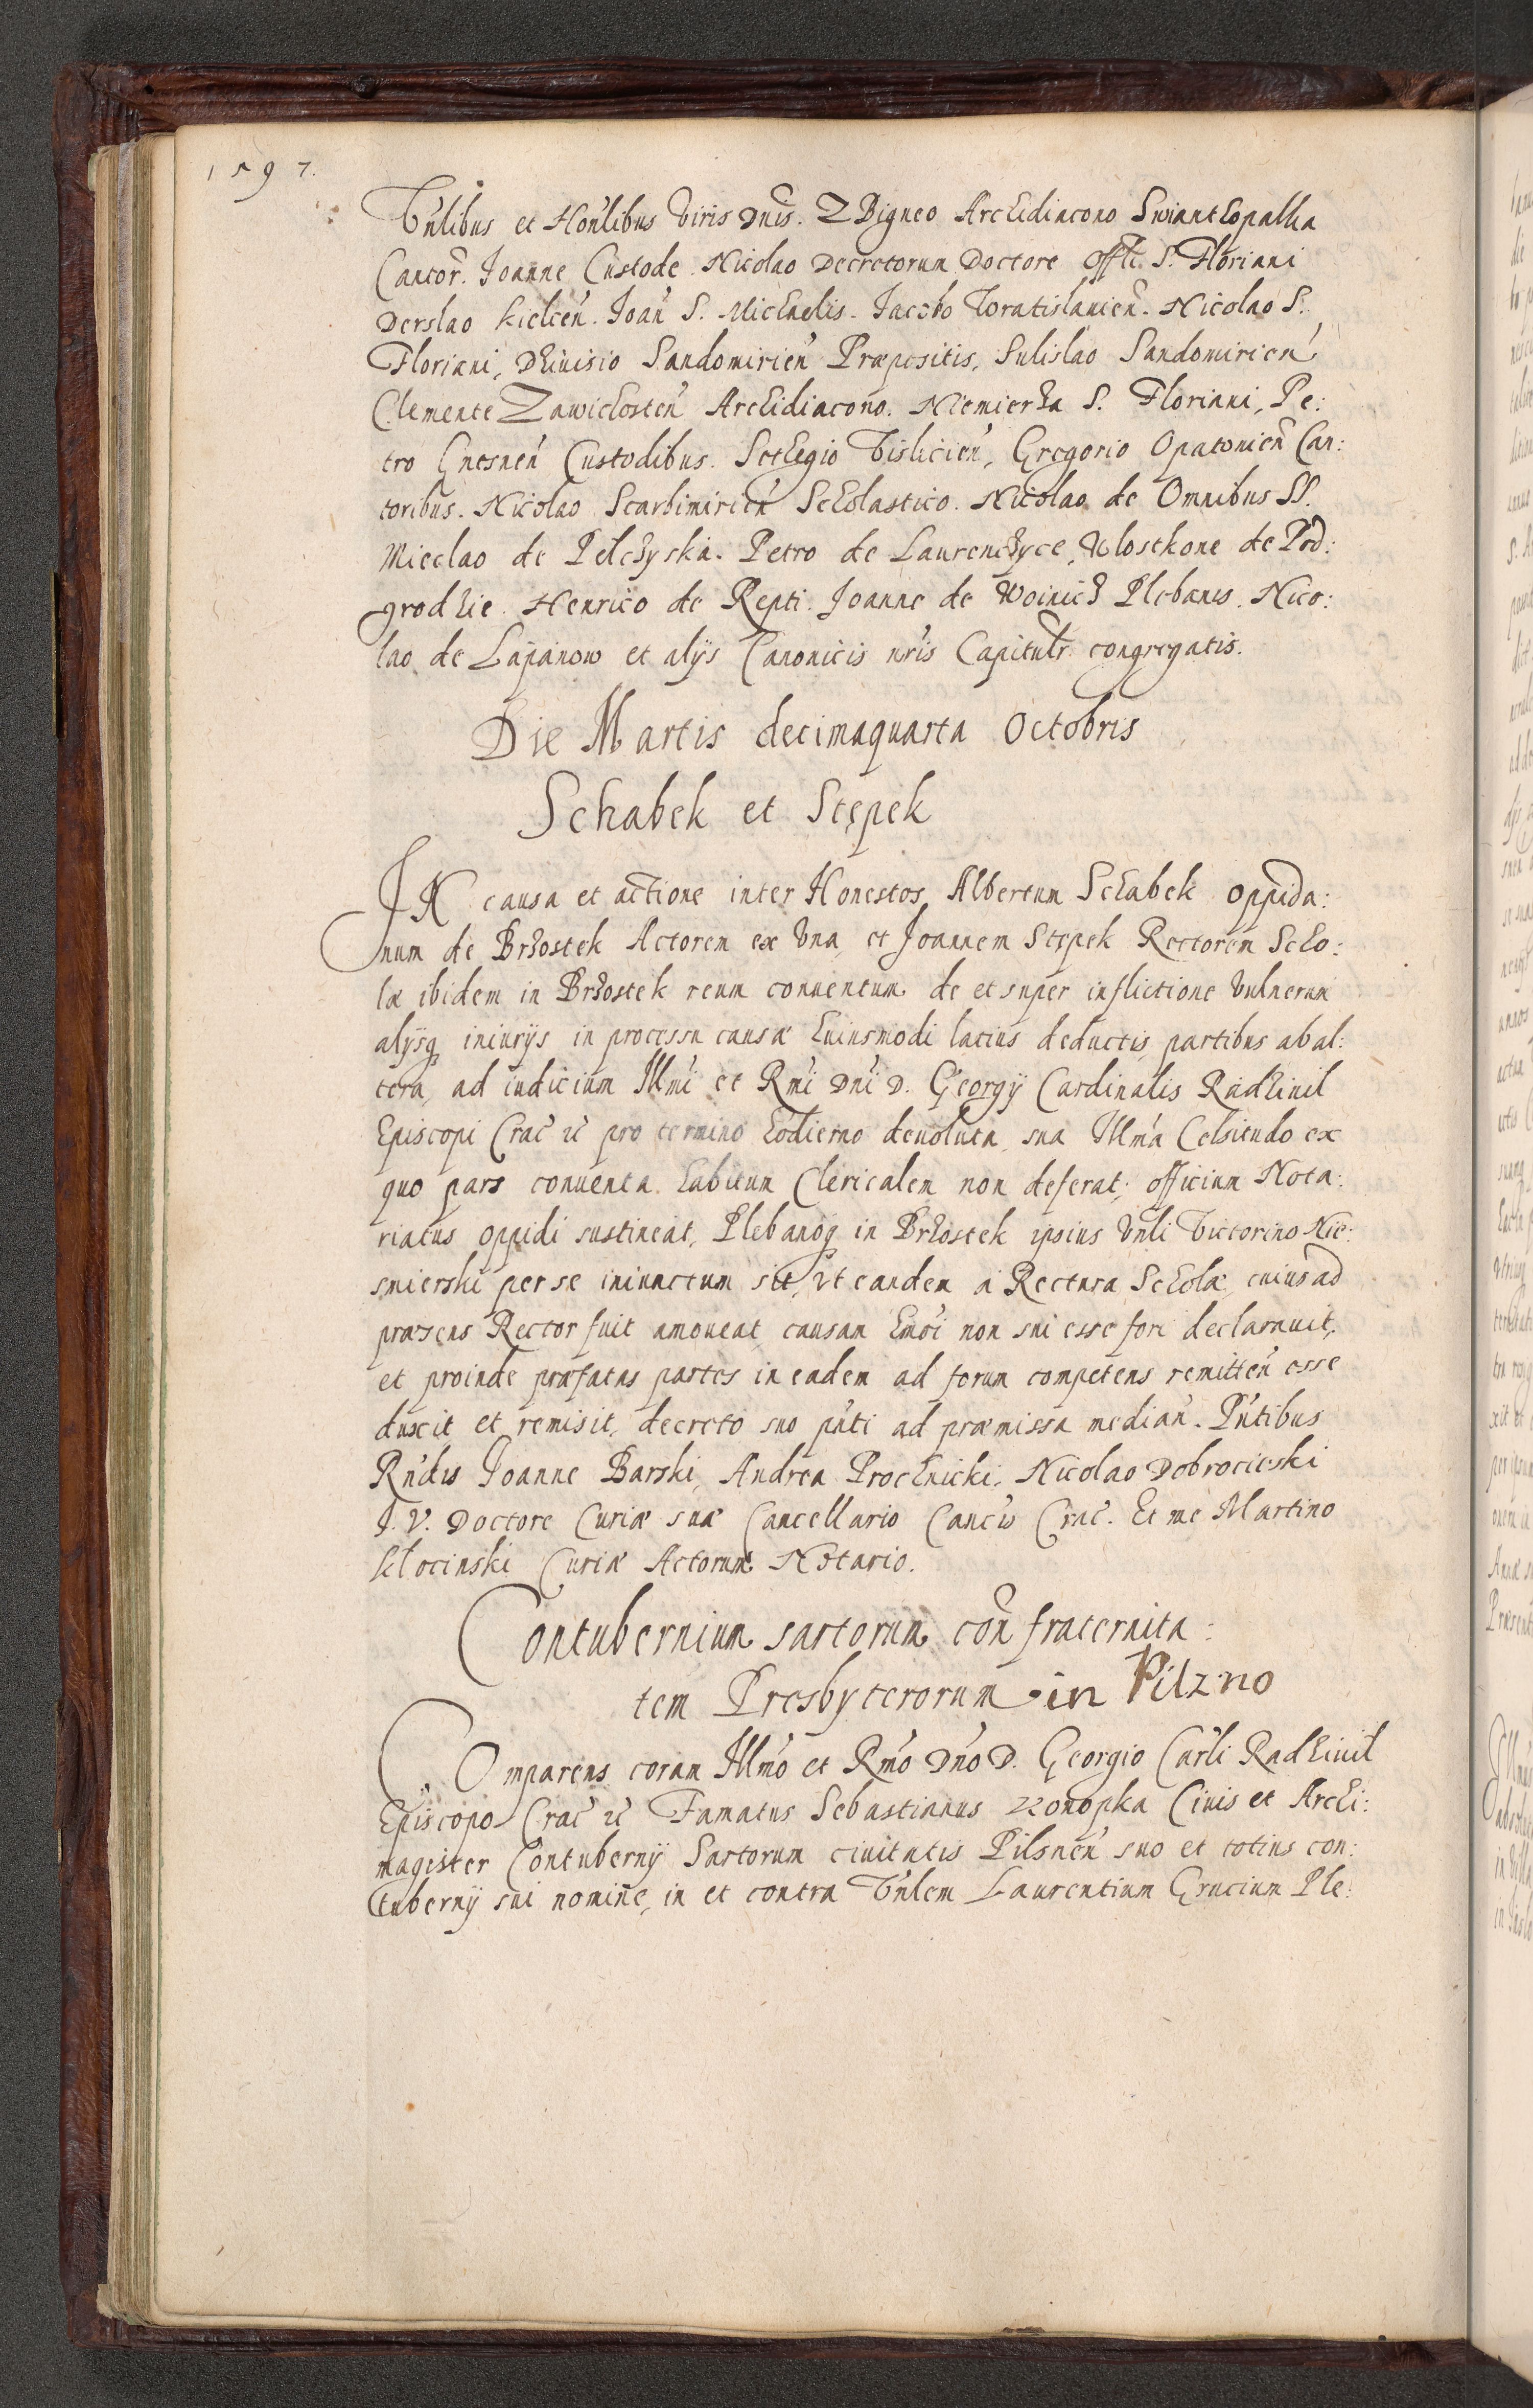 1597.
Vnlibus et Honlibus Viris Dnis. Zbigneo Archidiacono Swiantchopalka
Cantor. Joanne Custode. Nicolao Decretorum Doctore Offli. S. Floriani
Derslao Kielcen. Joan S. Michaelis. Jacobo Wratislauien. Nicolao S.
Floriani, Dziuisio Sandomirien Præpositis, Sulislao Sandomirien
Clemente Zawichosten Archidiacono. Niemierza S. Floriani, Pe:
tro Gnesnen Custodibus. Setegio Vislicien, Gregorio Opatouien Can:
toribus. Nicolao Scarbimirien Scholastico. Nicolao de Omnibus SS.
Mieclao de Pelczyska. Petro de Laurenczyce, Wlostkone de Pod:
grodzie. Henrico de Repti. Joanne de Woinicz Plebanis. Nico:
lao de Lapanow et alijs Canonicis nris Capitulr congregatis.
Die Martis decimaquarta Octobris
Schabek et Stępek
IN causa et actione inter Honestos Albertum Schabek oppida:
num de Brzostek Actorem ex vna, et Joannem Stępek Rectorem Scho:
læ ibidem in Brzostek reum conuentum de et super inflictione vulnerum
alijsq iniurijs in processu causæ huiusmodi latius deductis partibus ab al:
tera, ad iudicium Illmi et Rmi Dni D. Georgij Cardinalis Radziuil
Episcopi Crac &c pro termino hodierno deuoluta, sua Illma Celsitudo ex
quo pars conuenta habitum Clericalem non deferat, officium Nota:
riatus oppidi sustineat, Plebanoq in Brzostek ipsius Vnli Victorino Nie:
smierski per se iniunctum sit, vt eandem a Rectura Scholæ, cuius ad
præsens Rector fuit amoueat, causam hmoi non sui esse fori declarauit,
et proinde præfatas partes in eadem ad forum competens remitten esse
duxit et remisit, decreto suo pnti ad præmissa median. Pntibus
Rndis Joanne Barski, Andrea Prochnicki, Nicolao Dobrocieski
J. V. Doctore Curiæ suæ Cancellario Cancis Crac. Et me Martino
Klocinski Curiæ Actorum Notario.
Contubernium sartorum con fraternita:
tem Presbyterorum in Pilzno
Comparens coram Illmo et Rmo Dno D. Georgio Carli Radziuil
Episcopo Crac &c Famatus Sebastianus Konopka Ciuis et Archi:
magister Contubernij Sartorum ciuitatis Pilsnen suo et totius con:
tubernij sui nomine, in et contra Vnlem Laurentium Grucium Ple: